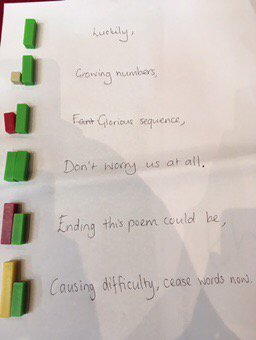 Luckily,
Growing numbers,
Fant Glorious sequence,
Don't worry us at all.
Ending this poem could be,
Causing difficulty, cease words now.